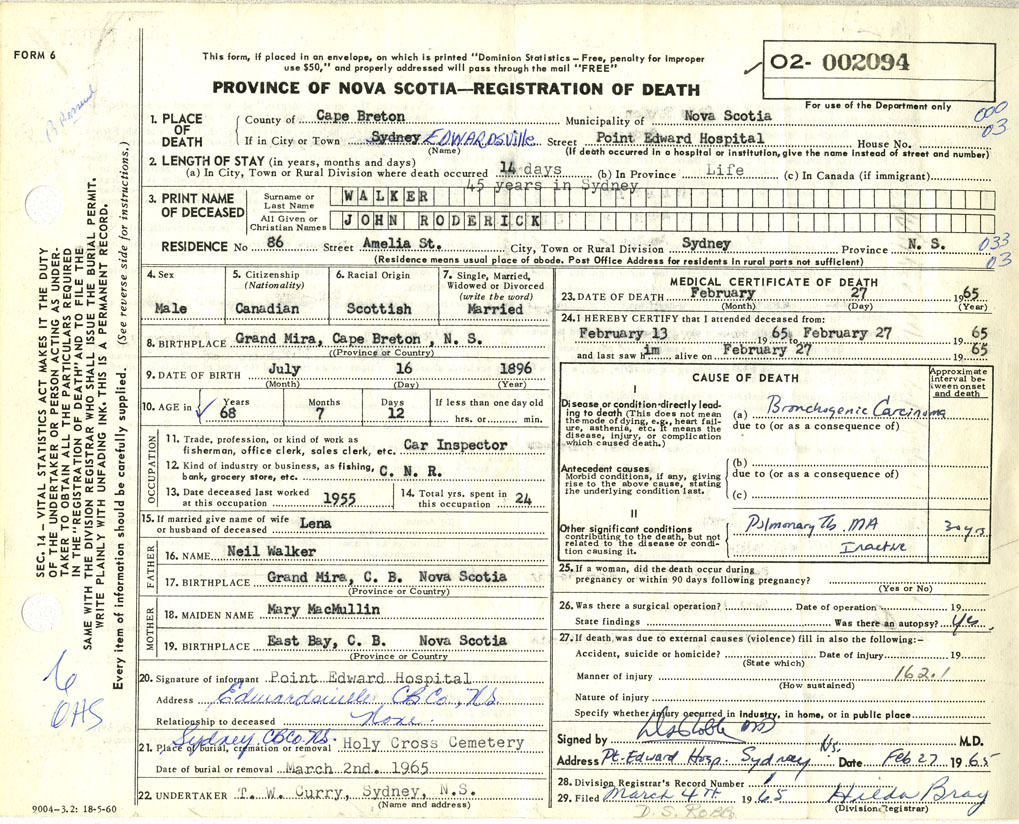 FORM 6
This form, if placed in an envelope, on which is printed "Dominion Statistics – Free, penalty for improper
use $50," and properly addressed will pass through the mail "FREE"
PROVINCE OF NOVA SCOTIA—REGISTRATION OF DEATH
02- 002094
For use of the Department only
000
03
1. PLACE OF DEATH
County of Cape Breton Municipality of Nova Scotia
If in City or Town Sydney EDWARDSVille Street Point Edward Hospital House No.
(Name) (If death occurred in a hospital or institution, give the name instead of street and number)
2. LENGTH OF STAY (in years, months and days)
(a) In City, Town or Rural Division where death occurred 14 days (b) In Province Life (c) In Canada (if immigrant)
45 years in Sydney
3. PRINT NAME OF DECEASED
Surname or Last Name WALKER
All Given or Christian Names JOHN RODERICK
RESIDENCE No 86 Street Amelia St. City, Town or Rural Division Sydney Province N. S. 033
03
(Residence means usual place of abode. Post Office Address for residents in rural parts not sufficient)
4. Sex
Male
5. Citizenship
(Nationality)
Canadian
6. Racial Origin
Scottish
7. Single, Married, Widowed or Divorced
(write the word)
Married
8. BIRTHPLACE Grand Mira, Cape Breton , N. S.
(Province or Country)
9. DATE OF BIRTH July 16 1896
(Month) (Day) (Year)
10. AGE in Years Months Days If less than one day old
68 7 12 hrs. or min.
OCCUPATION
11. Trade, profession, or kind of work as
fisherman, office clerk, sales clerk, etc. Car Inspector
12. Kind of industry or business, as fishing,
bank, grocery store, etc. C. N. R.
13. Date deceased last worked
at this occupation 1955
14. Total yrs. spent in
this occupation 24
15. If married give name of wife
or husband of deceased Lena
FATHER
16. NAME Neil Walker
17. BIRTHPLACE Grand Mira, C. B. Nova Scotia
(Province or Country)
MOTHER
18. MAIDEN NAME Mary MacMullin
19. BIRTHPLACE East Bay, C. B. Nova Scotia
(Province or Country)
20. Signature of informant Point Edward Hospital
Address Edwardsville CB Co., NS.
Relationship to deceased None.
Sydney, CB Co. N.S.
21. Place of burial, cremation or removal Holy Cross Cemetery
Date of burial or removal March 2nd. 1965
22. UNDERTAKER T. W. Curry, Sydney, N.S.
(Name and address)
MEDICAL CERTIFICATE OF DEATH
23. DATE OF DEATH February 27 1965
(Month) (Day) (Year)
24. I HEREBY CERTIFY that I attended deceased from:
February 13 1965 to February 27 1965
and last saw him alive on February 27 1965
CAUSE OF DEATH
Approximate interval between onset and death
I
Disease or condition directly leading to death (This does not mean the mode of dying, e.g., heart failure, asthenia, etc. It means the disease, injury, or complication which caused death.)
(a) Bronchogenic Carcinoma
due to (or as a consequence of)
Antecedent causes
Morbid conditions, if any, giving rise to the above cause, stating the underlying condition last.
(b)
due to (or as a consequence of)
(c)
II
Other significant conditions
contributing to the death, but not related to the disease or condition causing it.
Pulmonary Tb. MA 30 yrs
Inactive
25. If a woman, did the death occur during
pregnancy or within 90 days following pregnancy?
(Yes or No)
26. Was there a surgical operation? Date of operation 19
State findings Was there an autopsy? Yes
27. If death was due to external causes (violence) fill in also the following:–
Accident, suicide or homicide? Date of injury 19
(State which)
Manner of injury 162.1
(How sustained)
Nature of injury
Specify whether injury occurred in industry, in home, or in public place
Signed by MD M.D.
Address Pt. Edward Hosp. Sydney N.S. Date Feb 27 1965
28. Division Registrar's Record Number
29. Filed March 4th 1965 Hilda Bray
(Division Registrar)
D. S. Robb
SEC. 14 – VITAL STATISTICS ACT MAKES IT THE DUTY
OF THE UNDERTAKER OR PERSON ACTING AS UNDER-
TAKER TO OBTAIN ALL THE PARTICULARS REQUIRED
IN THE "REGISTRATION OF DEATH" AND TO FILE THE
SAME WITH THE DIVISION REGISTRAR WHO SHALL ISSUE THE BURIAL PERMIT.
WRITE PLAINLY WITH UNFADING INK. THIS IS A PERMANENT RECORD.
Every item of information should be carefully supplied. (See reverse side for instructions.)
9004-3.2: 18-5-60